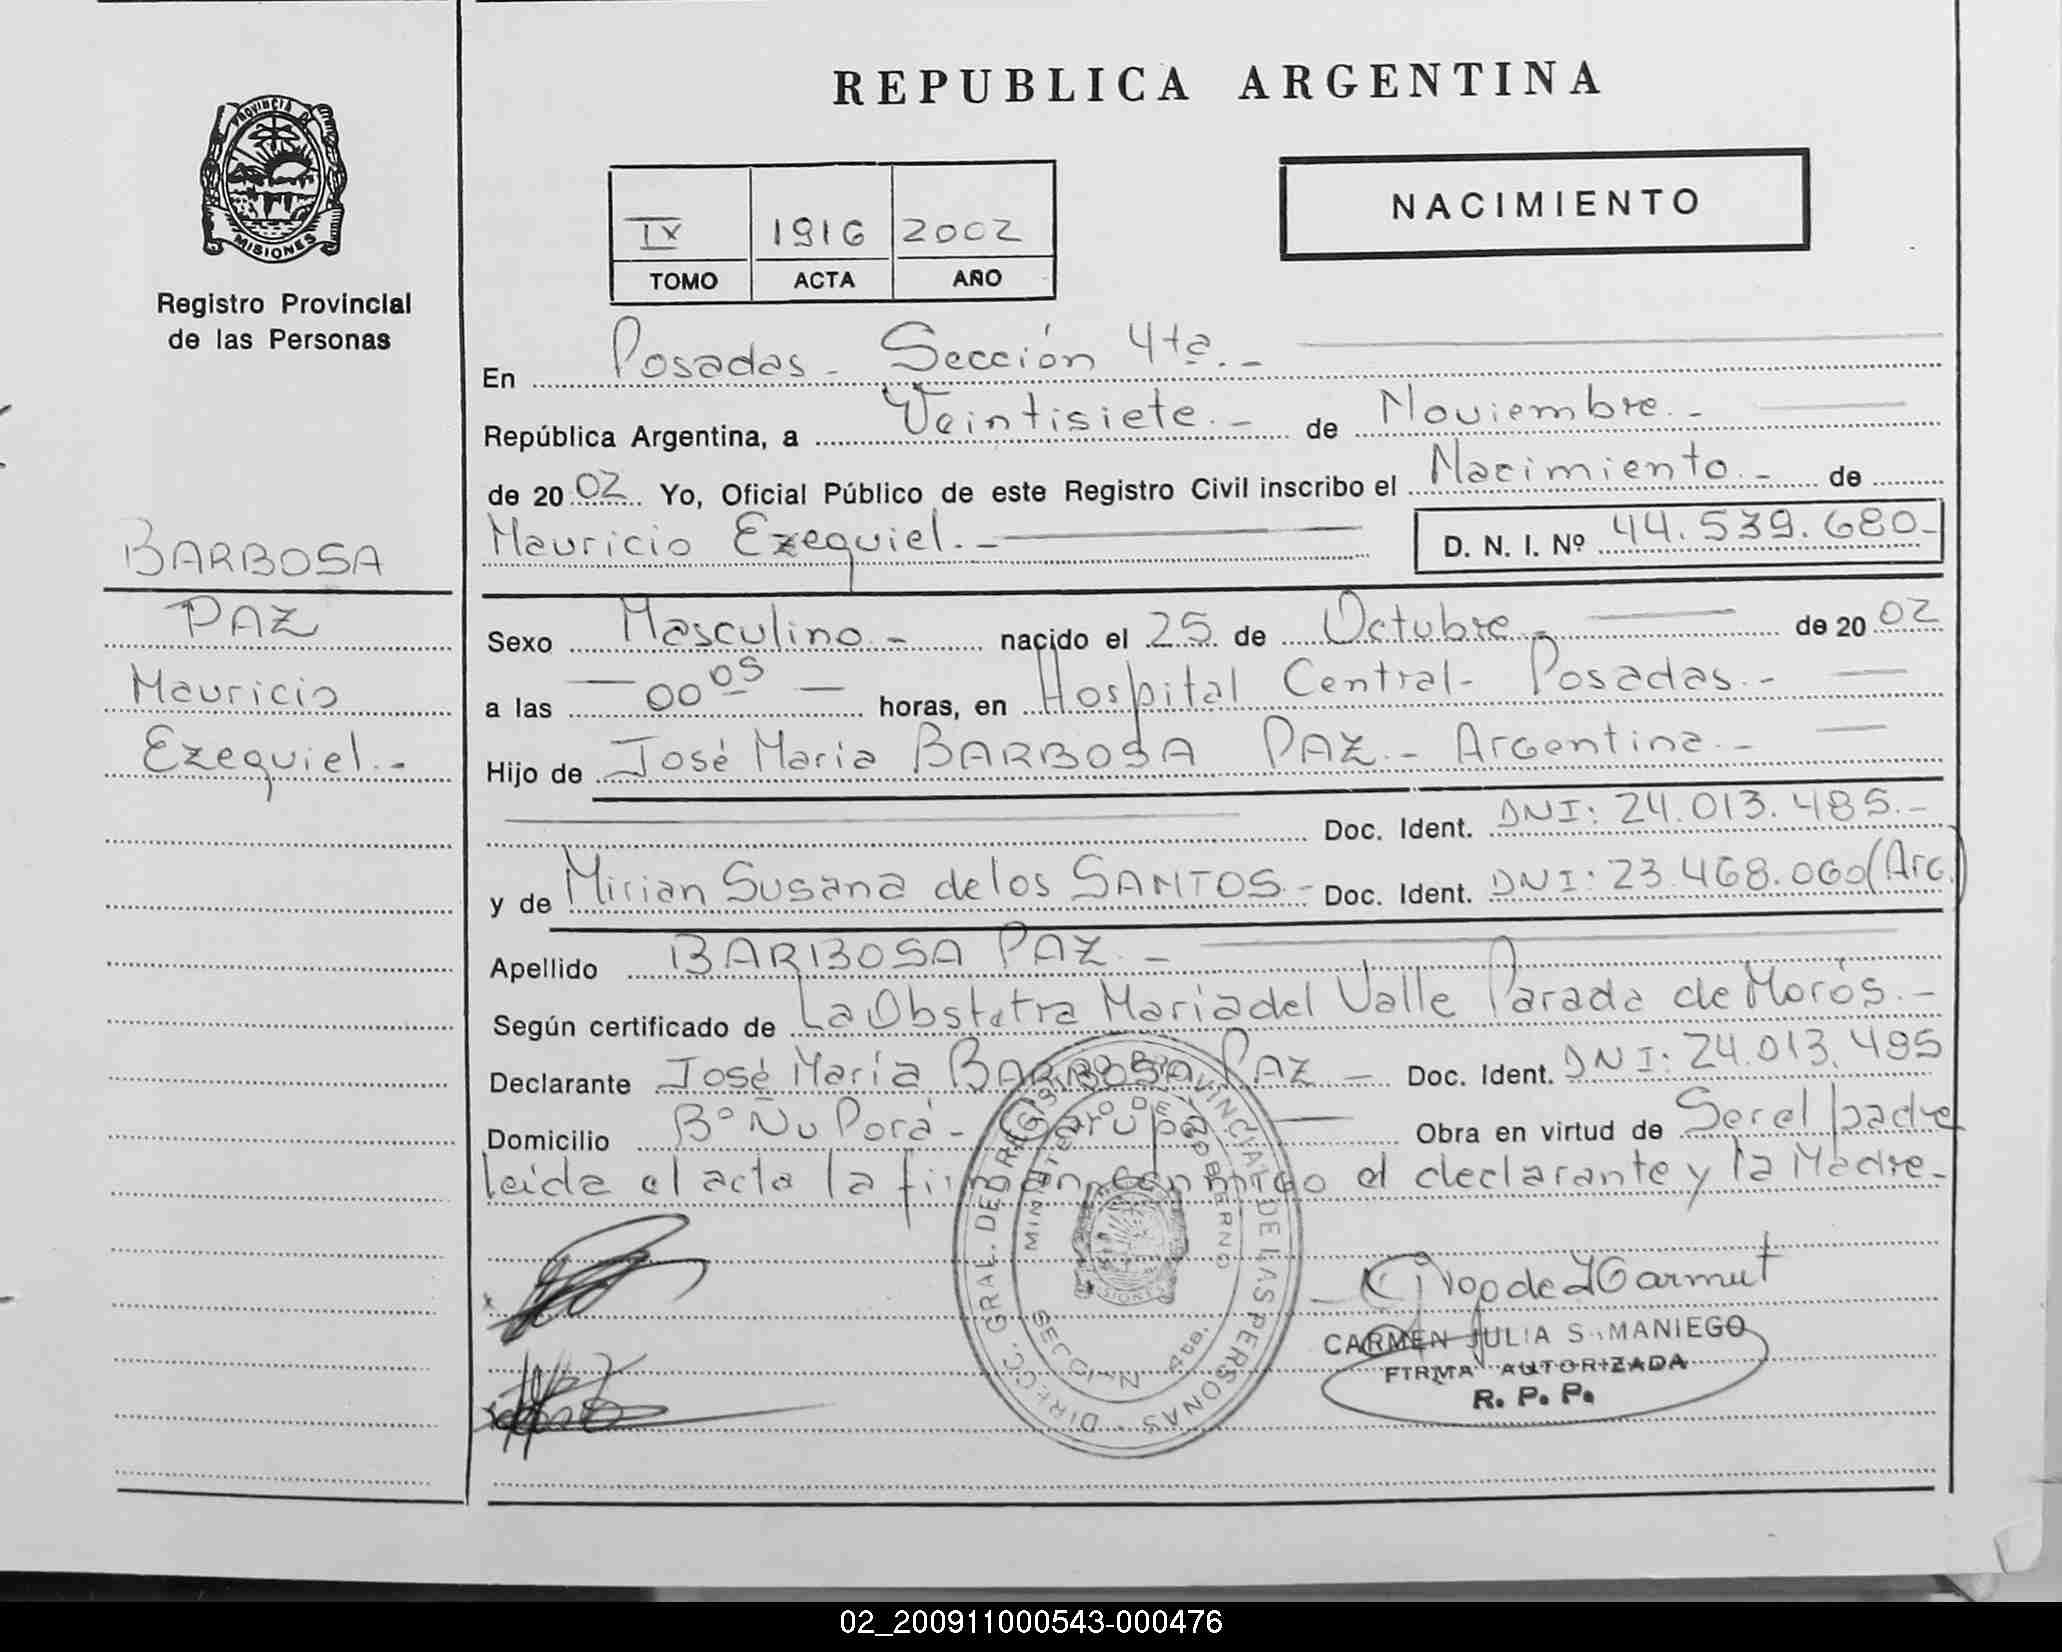 REPUBLICA ARGENTINA
PROVINCIA DE
MISIONES
Registro Provincial
de las Personas
NACIMIENTO
IX 1916 2002
TOMO ACTA AÑO
En Posadas - Sección 4ta.-
República Argentina, a Veintisiete.- de Noviembre.-
de 20 02 Yo, Oficial Público de este Registro Civil inscribo el Nacimiento.- de
Mauricio Ezequiel.- D. N. I. Nº 44.539.680-
BARBOSA
PAZ
Mauricio
Ezequiel.-
Sexo Masculino.- nacido el 25 de Octubre.- de 20 02
a las 00 05 horas, en Hospital Central- Posadas.-
Hijo de José Maria BARBOSA PAZ.- Argentina.-
Doc. Ident. DNI: 24.013.485.-
y de Mirian Susana de los SANTOS.- Doc. Ident. DNI: 23.468.060 (Arg.)
Apellido BARBOSA PAZ.-
Según certificado de La Obstetra Maria del Valle Parada de Morós.-
Declarante José María BARBOSA PAZ - Doc. Ident. DNI: 24.013.495
Domicilio Bº Ñu Porá - Garupá Obra en virtud de Ser el padre
leída el acta la firman conmigo el declarante y la Madre-
DIRECC. GRAL. DE REGISTRO PROVINCIAL DE LAS PERSONAS
MINISTERIO DE GOBIERNO
MISIONES
CARMEN JULIA SAMANIEGO
FIRMA AUTORIZADA
R. P. P.
02_200911000543-000476